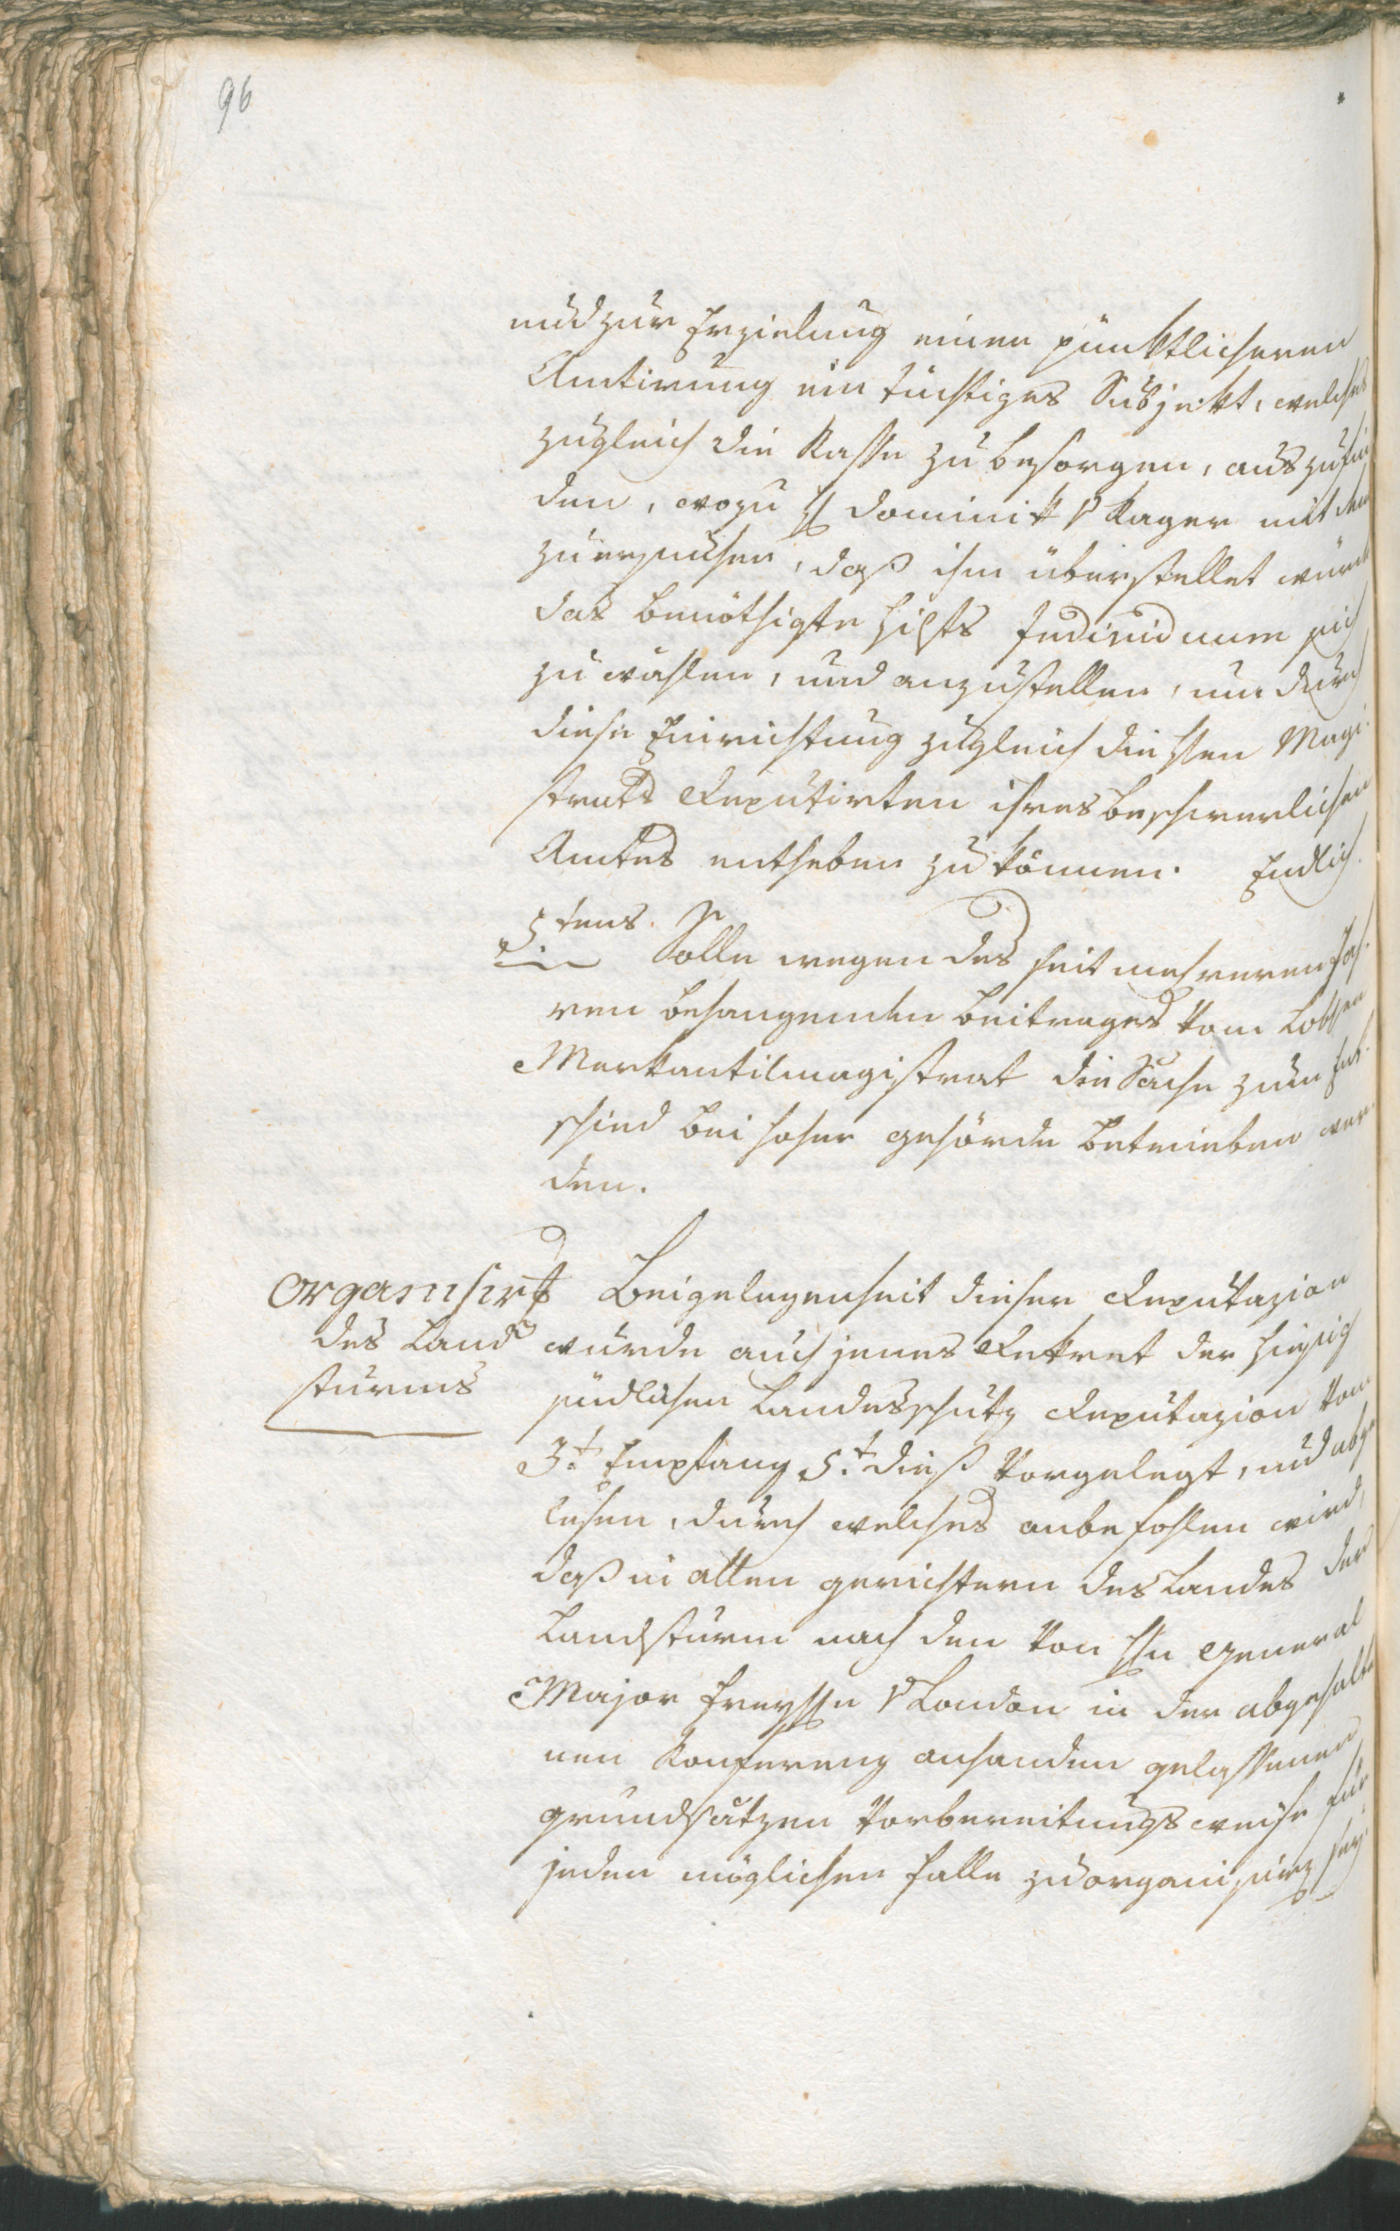 96
und zur Erzielung einer pünktlicheren
Amtirung ein tüchtiges Subjekt, welches
zugleich die Kasse zu besorgen, auszufin
den, wozu H Dominik v Kager mit dem
zu ersuchen, daß ihm überstellet würde
das benöthigte Hilfs Individuum sich
zu wählen, und anzustellen, um durch
diese Einrichtung zugleich die Hen Magi
strats Deputirten ihres beschwerlichen
Amtes entheben zu können. Endlich
5tens. Solle wegen des seit mehreren Jah
ren behangenden Beitrages vom Lobsen
Merkantilmagistrat die Sache zum Ent
schied bei hoher gehörde betrieben wer
den.
Organisirg
des Land
sturms
Bei gelegenheit dieser Deputazion
wurde auch jenes Dekret der hiesig
südlichen Landesschutz Deputazion vom
3t Empfang 5t dieß vorgelegt, und abge
lesen, durch welches anbefohlen wird,
daß in allen gerichtern des Landes der
Landsturm nach den von Hn General
Major Freyhn v Loudon in der abgehalte
nen Konferenz anhanden gelassenen
grundsätzen vorbereitungsweise für
jeden möglichen Falle zu organisirg sey.